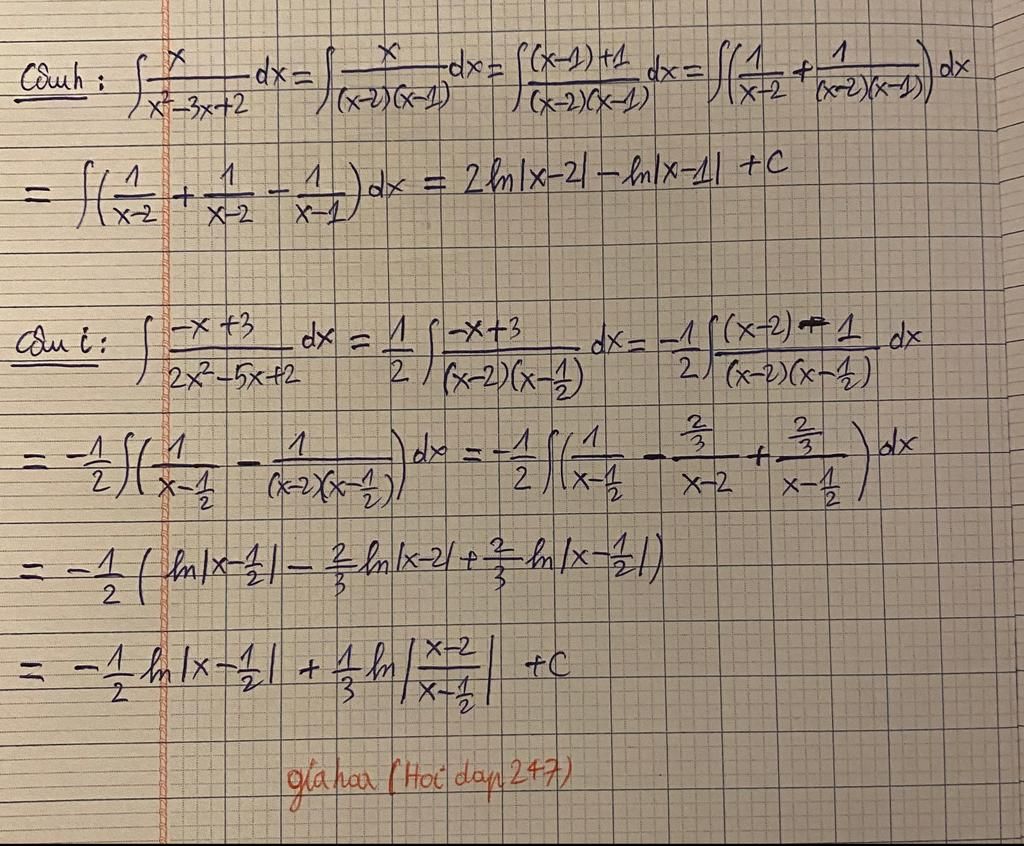 Câu h: ∫ x/(x²-3x+2) dx = ∫ x/((x-2)(x-1)) dx = ∫ ((x-1)+1)/((x-2)(x-1)) dx = ∫(1/(x-2) + 1/((x-2)(x-1))) dx
= ∫(1/(x-2) + 1/(x-2) - 1/(x-1)) dx = 2ln|x-2| - ln|x-1| + C
Câu i: ∫ (-x+3)/(2x²-5x+2) dx = 1/2 ∫ (-x+3)/((x-2)(x-1/2)) dx = -1/2 ∫ ((x-2)-1)/((x-2)(x-1/2)) dx
= -1/2 ∫(1/(x-1/2) - 1/((x-2)(x-1/2))) dx = -1/2 ∫(1/(x-1/2) - (2/3)/(x-2) + (2/3)/(x-1/2)) dx
= -1/2 (ln|x-1/2| - 2/3 ln|x-2| + 2/3 ln|x-1/2|)
= -1/2 ln|x-1/2| + 1/3 ln|(x-2)/(x-1/2)| + C
giahoa (Hoi dap 247)